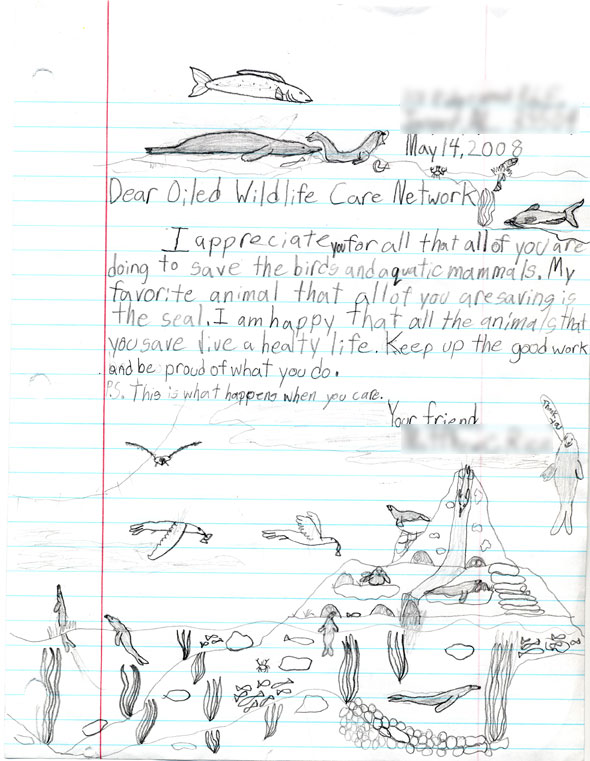 May 14, 2008
Dear Oiled Wildlife Care Network
I appreciate you for all that all of you are
doing to save the birds and aquatic mammals. My
favorite animal that all of you are saving is
the seal. I am happy that all the animals that
you save live a healty life. Keep up the good work
and be proud of what you do.
P.S. This is what happens when you care.
Your friend
Thank you!